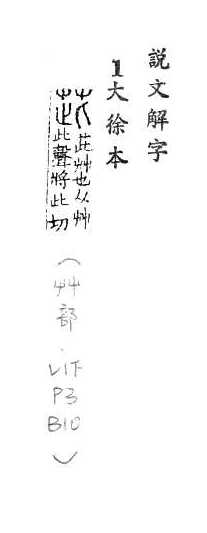 説文解字
1大徐本
茈 茈艸也从艸
此聲將此切
（艸部．V1下
P3
B10）